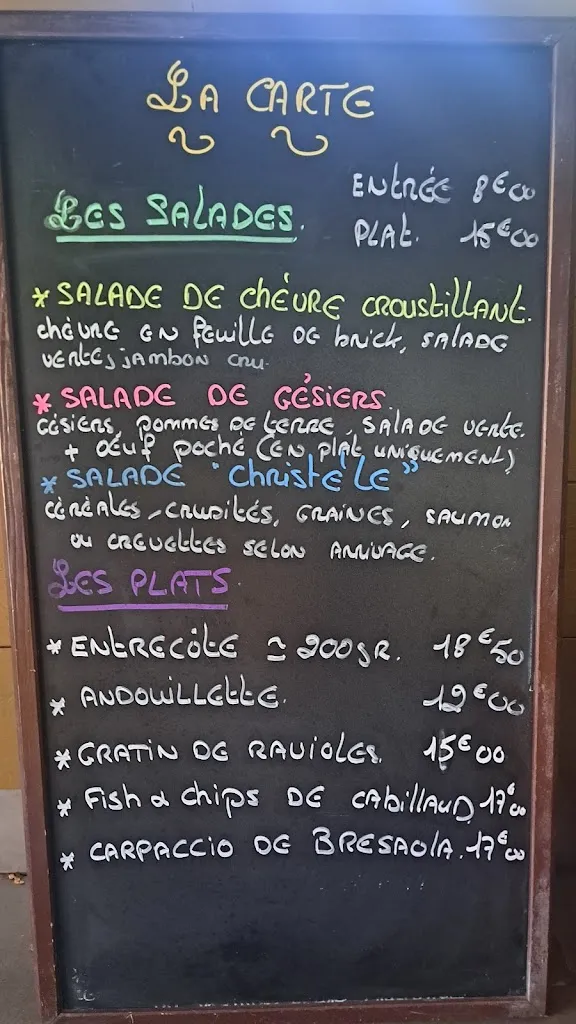 LA CARTE
LES SALADES. ENTRÉE 8€00
PLAT. 15€00
* SALADE DE Chèvre CROUStillANt.
chèvre EN feuille DE brick, SALADE
vertes jambon cru.
* SALADE DE GÉSIERS.
GÉSIERS, POMMES DE TERRE, SALADE VERTE.
+ OEUF poché (EN plat UNIQUEMENt)
* SALADE "ChristèLE"
CÉRÉALES, CRUDITÉS, GRAINES, SAUMON
OU CREVETTES SELON ARRIVAGE.
LES PLATS.
* ENTRECÔTE ≃ 200gR. 18€50
* ANDOUILLETTE. 12€00
* GRATIN DE RAVIOLES. 15€00
* Fish & chips DE CABILLAUD. 17€00
* CARPACCIO DE BRESAOLA. 17€00